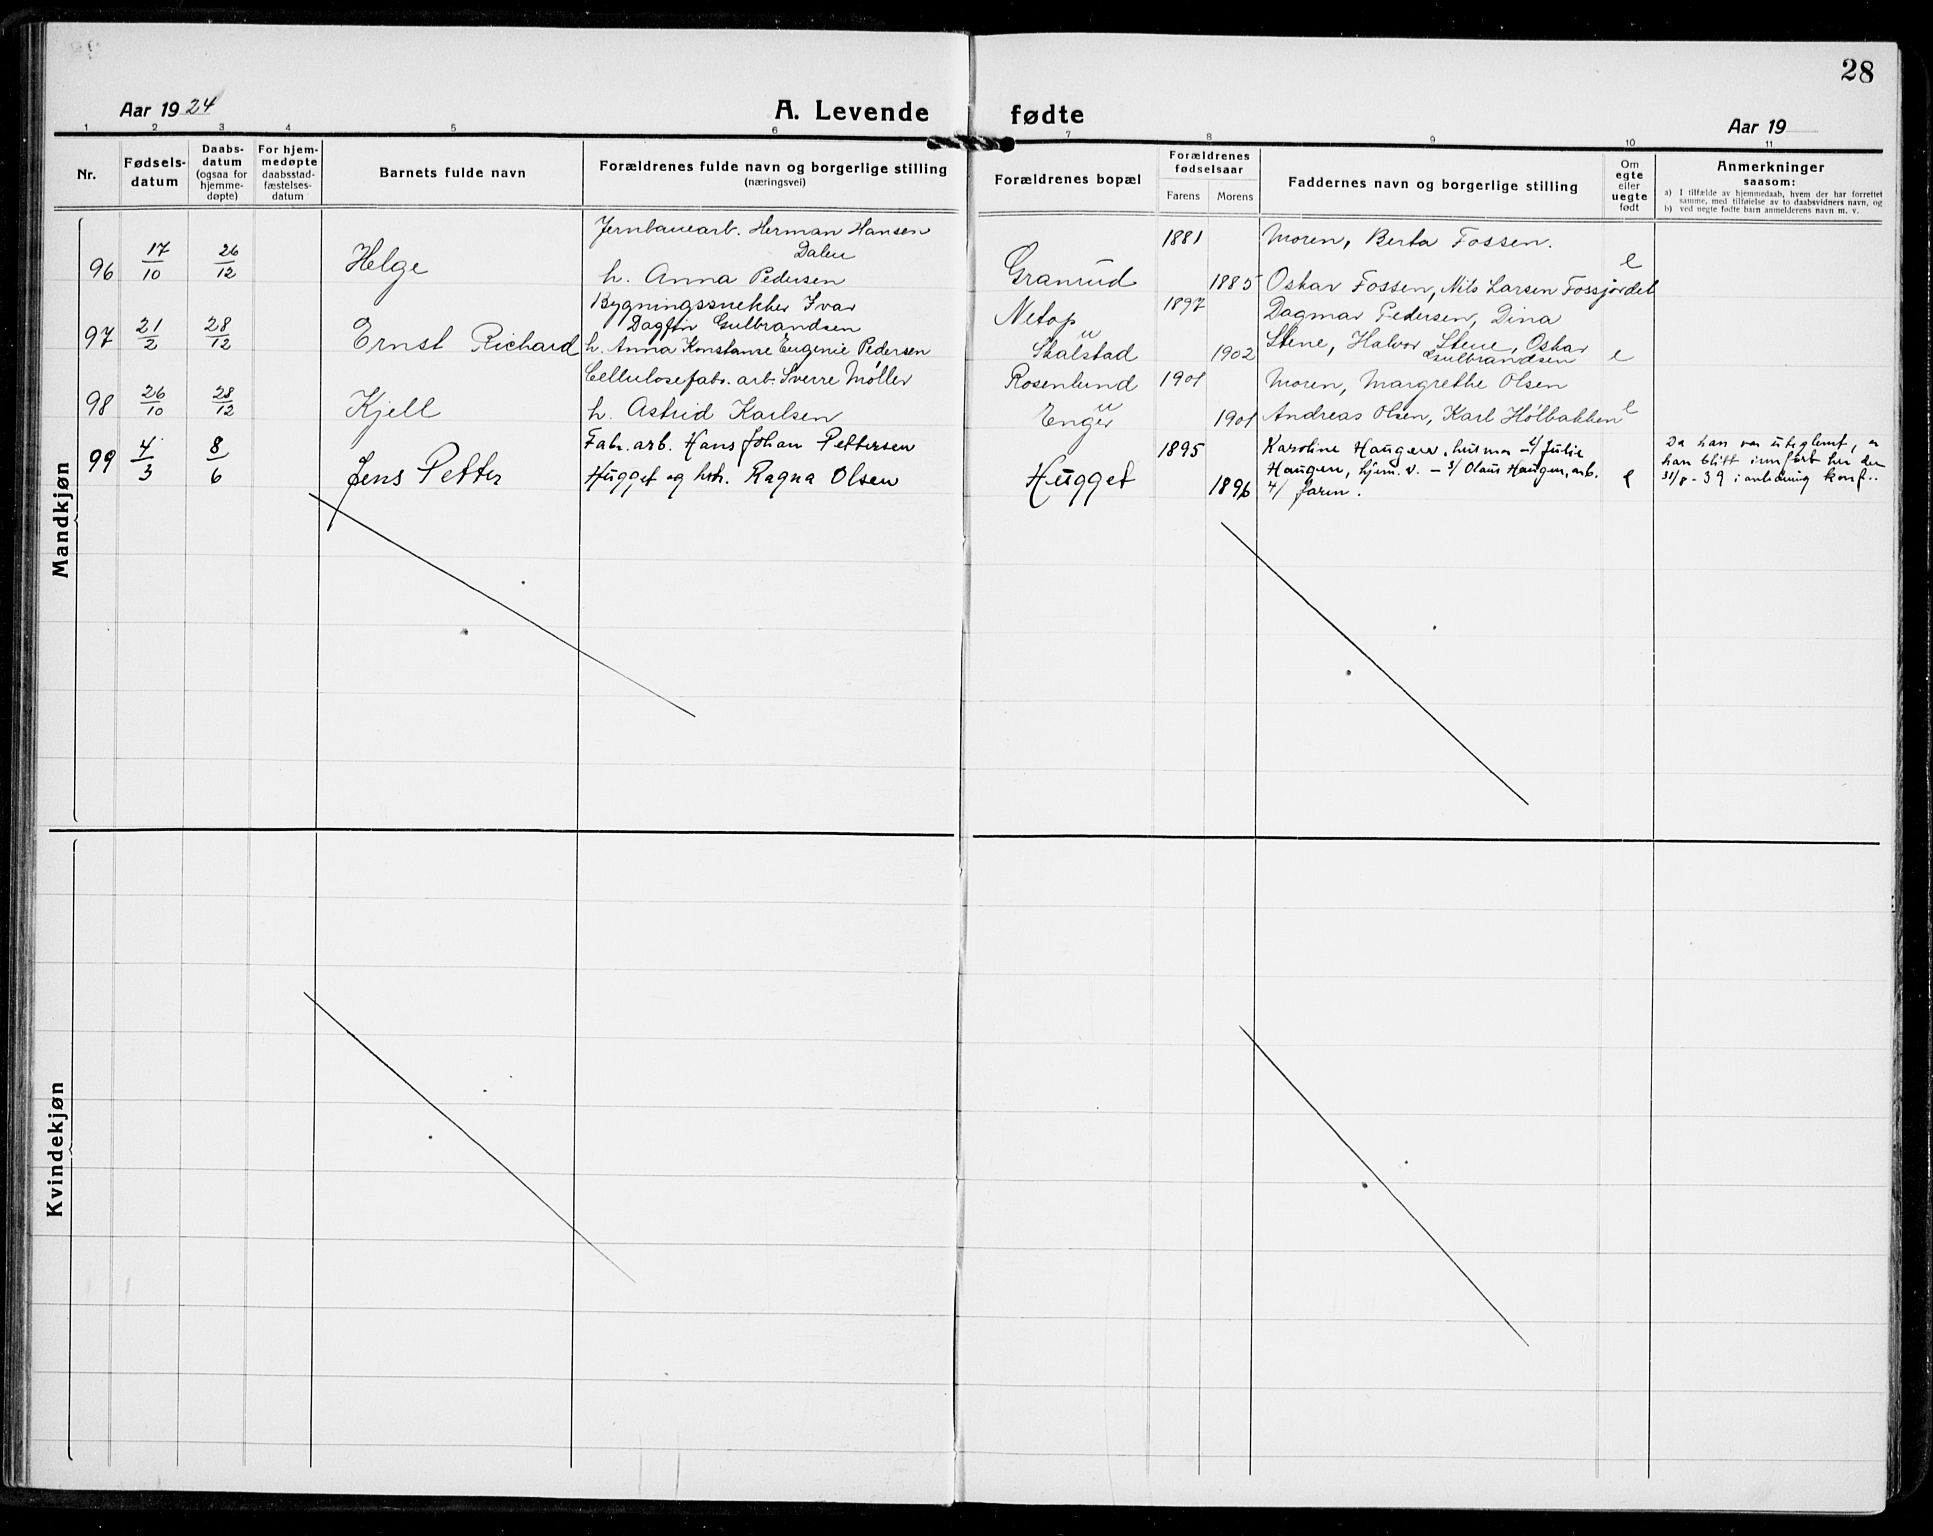 28
Aar 1924
A. Levende fødte
Aar 19
1 2 3 4 5 6 7 8 9 10 11
Nr.
Fødsels-
datum
Daabs-
datum
(ogsaa for
hjemme-
døpte)
For hjem-
medøpte
daabsstad-
fæstelses-
datum
Barnets fulde navn
Forældrenes fulde navn og borgerlige stilling
(næringsvei)
Forældrenes bopæl
Forældrenes
fødselsaar
Farens Morens
Faddernes navn og borgerlige stilling
Om
egte
eller
uegte
født
Anmerkninger
saasom:
a) I tilfælde av hjemmedaab, hvem der har forrettet
samme, med tilføielse av to daabsvidners navn, og
b) ved uegte fødte barn anmelderens navn m. v.
Mandkjøn
96 17/10 26/12 Helge
Jernbanearb. Herman Hansen
Dalen
h. Anna Pedersen
Granrud
1881 1885
Moren, Berta Fossen.
Oskar Fossen, Nils Larsen Fossjordet
e
97 21/2 28/12 Ernst Richard
Bygningssnekker Ivar
Dagfin Gulbrandsen
h. Anna Konstanse Eugenie Pedersen
Netop
Skalstad
1897 1902
Dagmar Pedersen, Dina
Stene, Halvor Stene, Oskar
Gulbrandsen
e
98 26/10 28/12 Kjell
Cellulosefabr. arb. Sverre Møller
h. Astrid Karlsen
Rosenlund
Enger
1901 1901
Moren, Margrethe Olsen
Andreas Olsen, Karl Holbakken
e
99 4/3 8/6 Jens Petter
Fabr. arb. Hans Johan Pettersen
Hugget og hstr. Ragna Olsen
Hugget
1895 1896
Karoline Haugen, husmor - 2/ Julie
Haugen, hjem. v. - 3/ Olaus Haugen, arb.
4/ Faren.
e
Da han var uteglemt, er
han blitt innført her den
31/8 - 39 i anledning konf..
Kvindekjøn